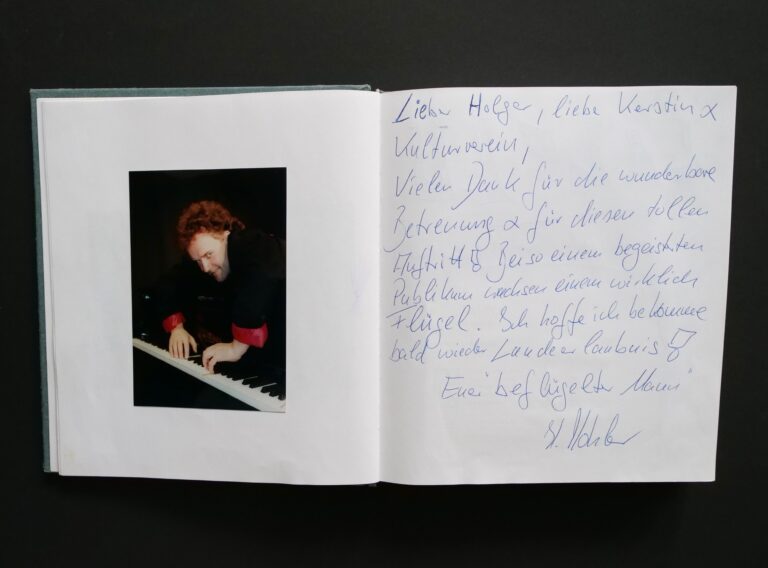 Lieber Holger, liebe Kerstin &
Kulturverein,
Vielen Dank für die wunderbare
Betreuung & für diesen tollen
Auftritt! Bei so einem begeisterten
Publikum wachsen einem wirklich
Flügel. Ich hoffe ich bekomme
bald wieder Landeerlaubnis!
Euer "beflügelter Mann"
St.